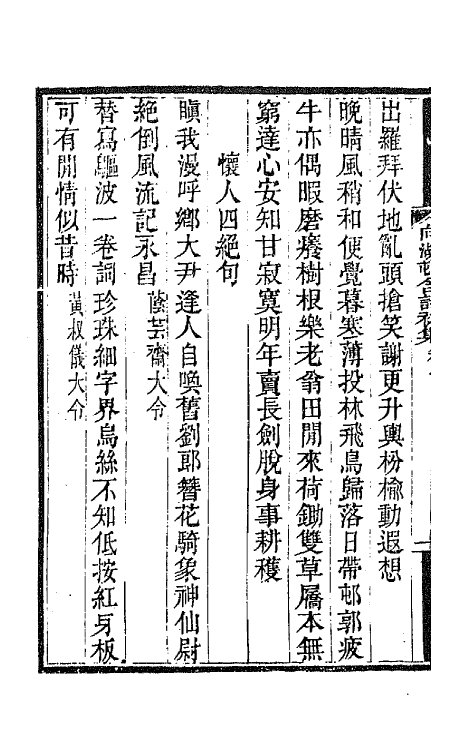 出羅拜伏地亂頭搶笑謝更升輿枌榆動遐想
晚晴風稍和便覺暮寒薄投林飛鳥歸落日帶邨郭疲
牛亦偶暇磨癢樹根樂老翁田閒來荷鋤雙草屩本無
窮達心安知甘寂寞明年賣長劍脫身事耕穫
懷人四絕句
瞋我漫呼鄉大尹逢人自喚舊劉郎簪花騎象神仙尉
絕倒風流記永昌
齋大令
替寫鷗波一卷詞珍珠細字界烏絲不知低按紅牙板
可有閒情似昔時
黃叔儀大令